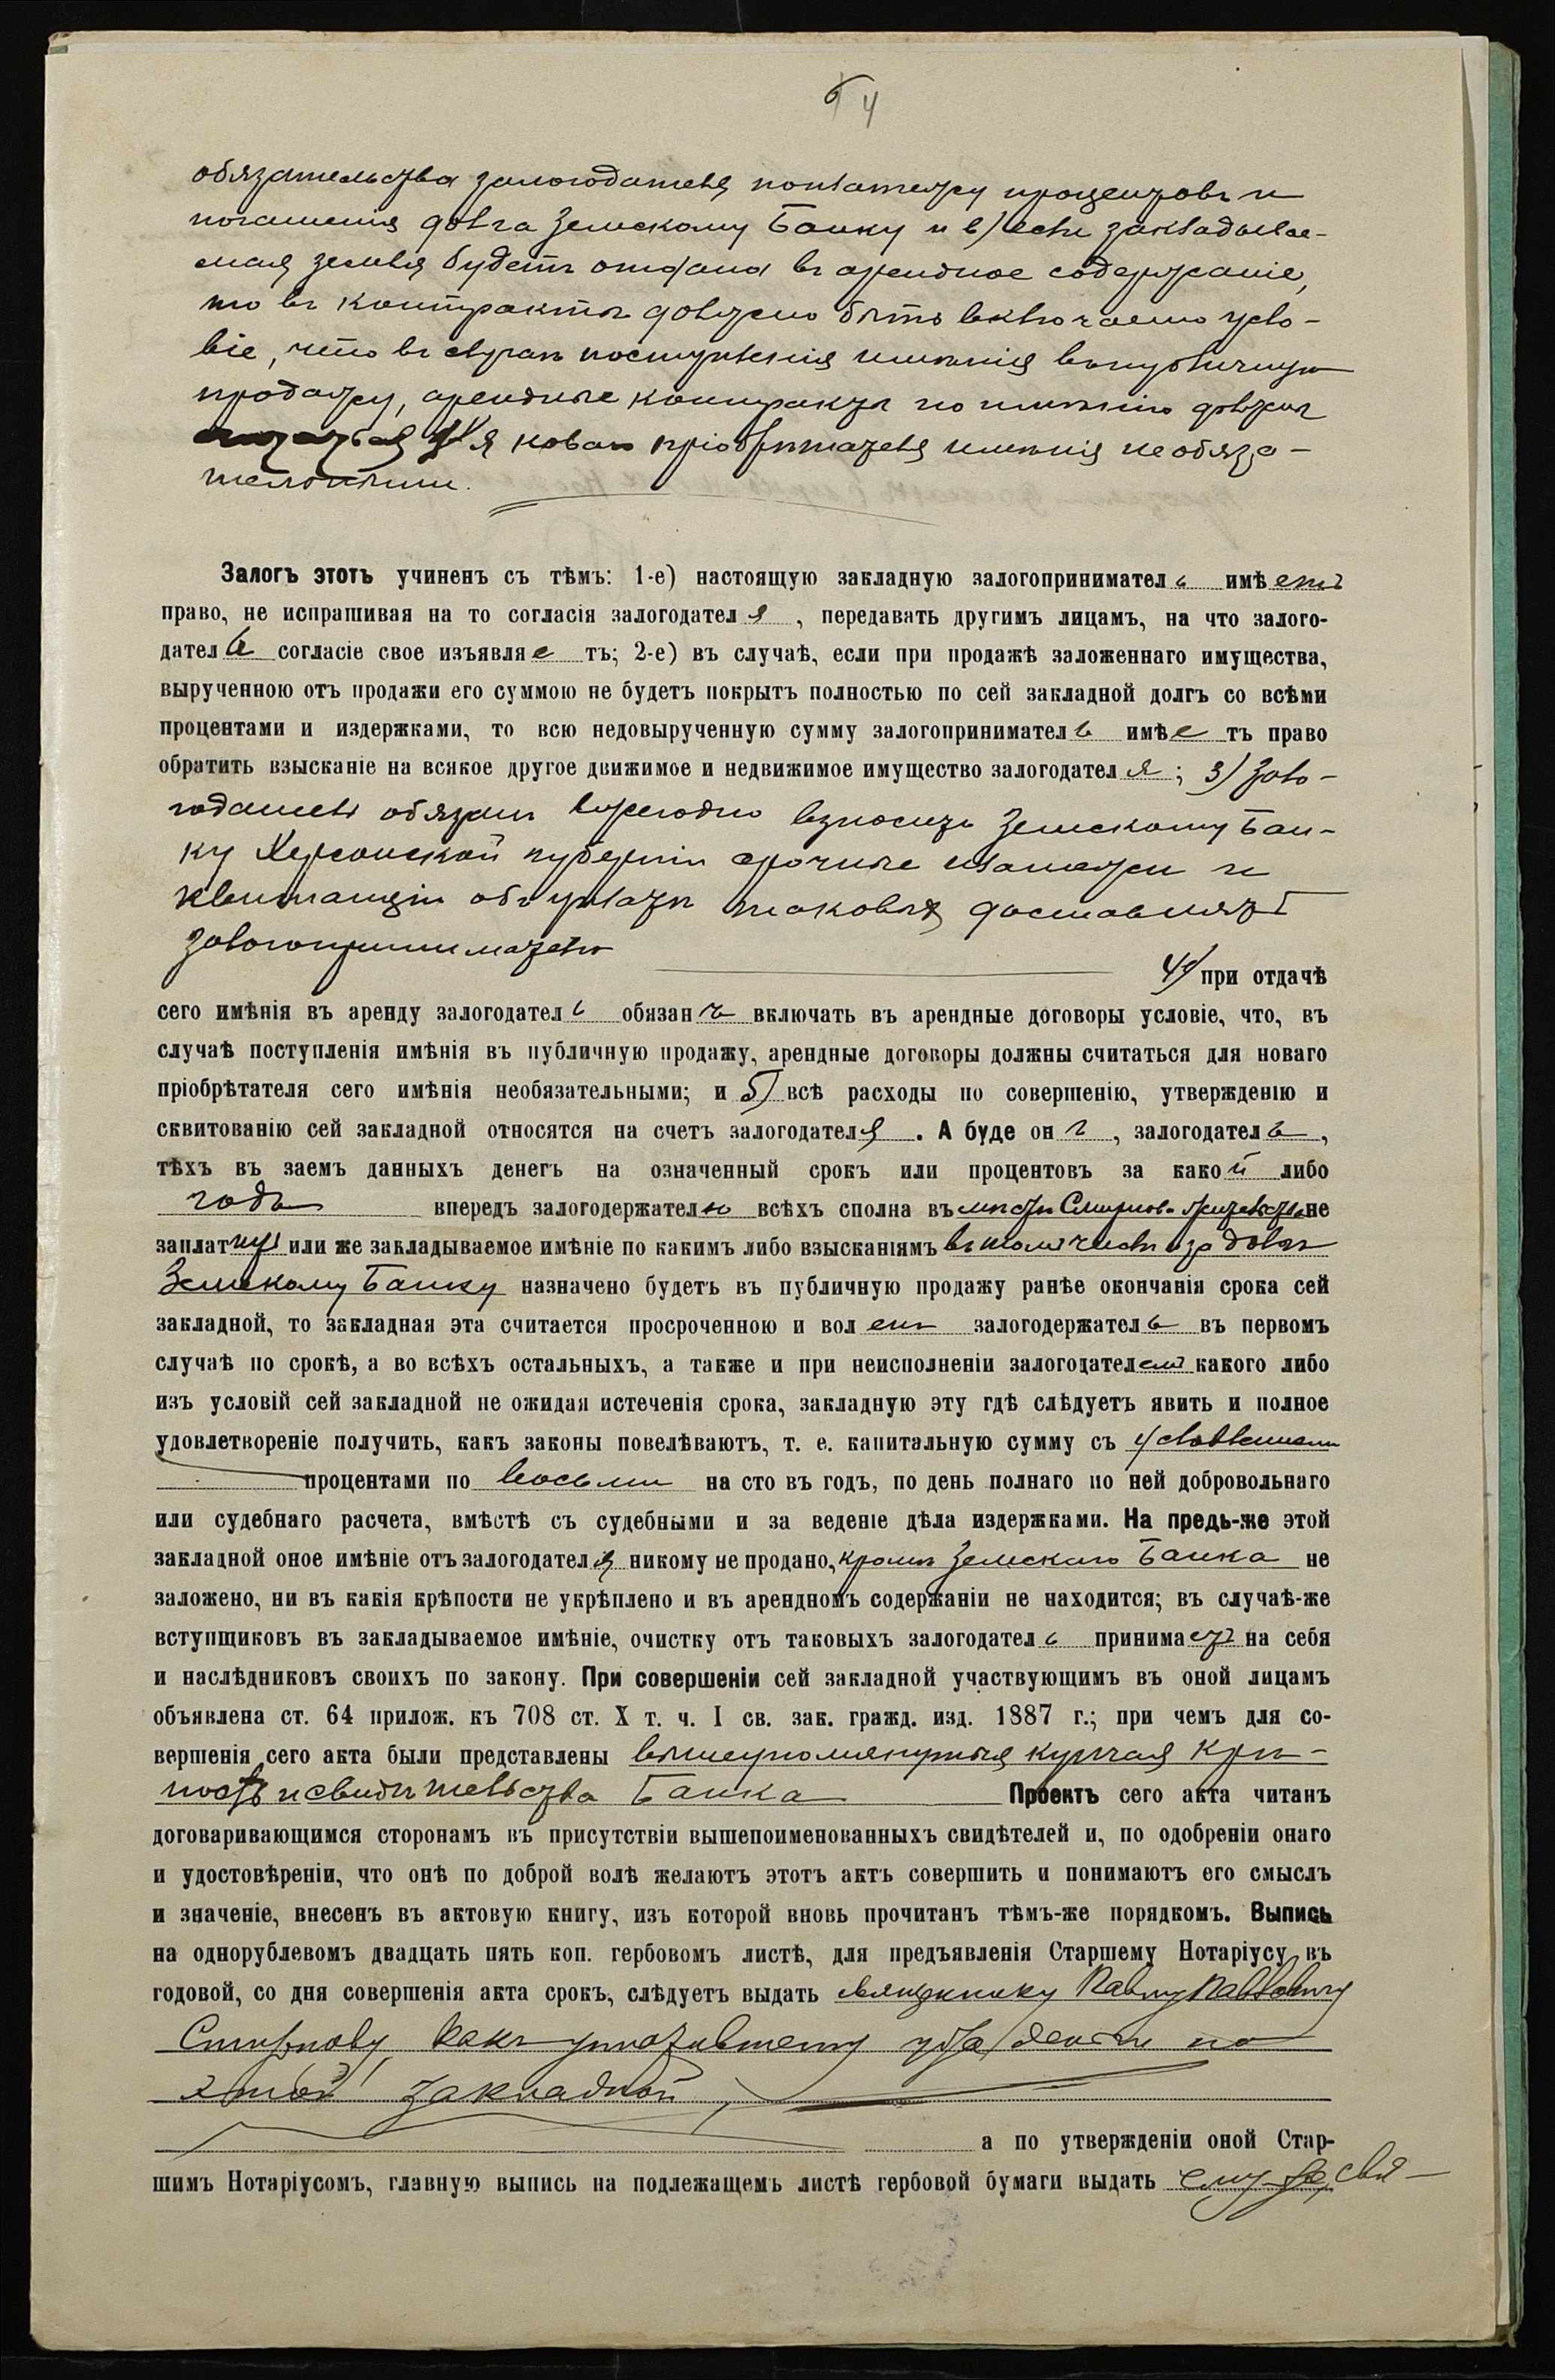 4
обязательства залогодателя по платежу процентовъ и
погашенія долга Земскому Банку и в) если закладывае-
мая земля будетъ отдана въ арендное содержаніе,
то въ контракты должно быть включаемо усло-
віе, что въ случаѣ поступленія имѣнія въ публичную
продажу, арендные контракты по имѣнію должны
для новаго пріобрѣтателя имѣнія необяза-
тельными.
Залогъ этотъ учиненъ съ тѣмъ: 1-е) настоящую закладную залогопринимател ь имѣ етъ
право, не испрашивая на то согласія залогодател я , передавать другимъ лицамъ, на что залого-
дател ь согласіе свое изъявля е тъ; 2-е) въ случаѣ, если при продажѣ заложеннаго имущества,
вырученною отъ продажи его суммою не будетъ покрытъ полностью по сей закладной долгъ со всѣми
процентами и издержками, то всю недовырученную сумму залогопринимател ь имѣ е тъ право
обратить взысканіе на всякое другое движимое и недвижимое имущество залогодател я ; 3) Зало-
годатель обязанъ ежегодно взносить Земскому Бан-
ку Херсонской губерніи срочные платежи и
квитанціи объ уплатѣ таковыхъ доставлять
залогопринимателю
4) при отдачѣ
сего имѣнія въ аренду залогодател ь обязан ъ включать въ арендные договоры условіе, что, въ
случаѣ поступленія имѣнія въ публичную продажу, арендные договоры должны считаться для новаго
пріобрѣтателя сего имѣнія необязательными; и 5) всѣ расходы по совершенію, утвержденію и
сквитованію сей закладной относятся на счетъ залогодател я . А буде он ъ , залогодател ь ,
тѣхъ въ заемъ данныхъ денегъ на означенный срокъ или процентовъ за како й либо
годъ впередъ залогодержател ю всѣхъ сполна въ мѣстѣ Смирнова жительства не
заплат итъ или же закладываемое имѣніе по какимъ либо взысканіямъ въ томъ числѣ и за долгъ
Земскому Банку назначено будетъ въ публичную продажу ранѣе окончанія срока сей
закладной, то закладная эта считается просроченною и вол енъ залогодержател ь въ первомъ
случаѣ по срокѣ, а во всѣхъ остальныхъ, а также и при неисполненіи залогодател емъ какого либо
изъ условій сей закладной не ожидая истеченія срока, закладную эту гдѣ слѣдуетъ явить и полное
удовлетвореніе получить, какъ законы повелѣваютъ, т. е. капитальную сумму съ условленными
процентами по восьми на сто въ годъ, по день полнаго по ней добровольнаго
или судебнаго расчета, вмѣстѣ съ судебными и за веденіе дѣла издержками. На предь-же этой
закладной оное имѣніе отъ залогодател я никому не продано, кромѣ Земскаго Банка не
заложено, ни въ какія крѣпости не укрѣплено и въ арендномъ содержаніи не находится; въ случаѣ-же
вступщиковъ въ закладываемое имѣніе, очистку отъ таковыхъ залогодател ь принима етъ на себя
и наслѣдниковъ своихъ по закону. При совершеніи сей закладной участвующимъ въ оной лицамъ
объявлена ст. 64 прилож. къ 708 ст. X т. ч. I св. зак. гражд. изд. 1887 г.; при чемъ для со-
вершенія сего акта были представлены вышеупомянутыя купчая крѣ-
пость и свидѣтельства Банка Проектъ сего акта читанъ
договаривающимся сторонамъ въ присутствіи вышепоименованныхъ свидѣтелей и, по одобреніи онаго
и удостовѣреніи, что онѣ по доброй волѣ желаютъ этотъ актъ совершить и понимаютъ его смыслъ
и значеніе, внесенъ въ актовую книгу, изъ которой вновь прочитанъ тѣмъ-же порядкомъ. Выпись
на однорублевомъ двадцать пять коп. гербовомъ листѣ, для предъявленія Старшему Нотаріусу въ
годовой, со дня совершенія акта срокъ, слѣдуетъ выдать священнику Павлу Павловичу
Смирнову, какъ деньги по
этой закладной
а по утвержденіи оной Стар-
шимъ Нотаріусомъ, главную выпись на подлежащемъ листѣ гербовой бумаги выдать ему же, свя-